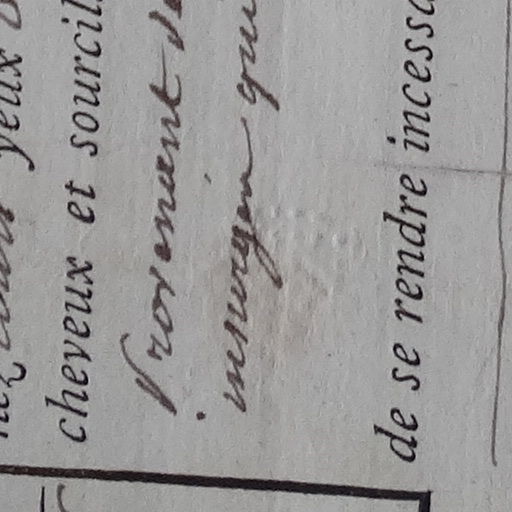 yeux
cheveux et sourcil
Provenant de
insurgen que
de se rendre incessa